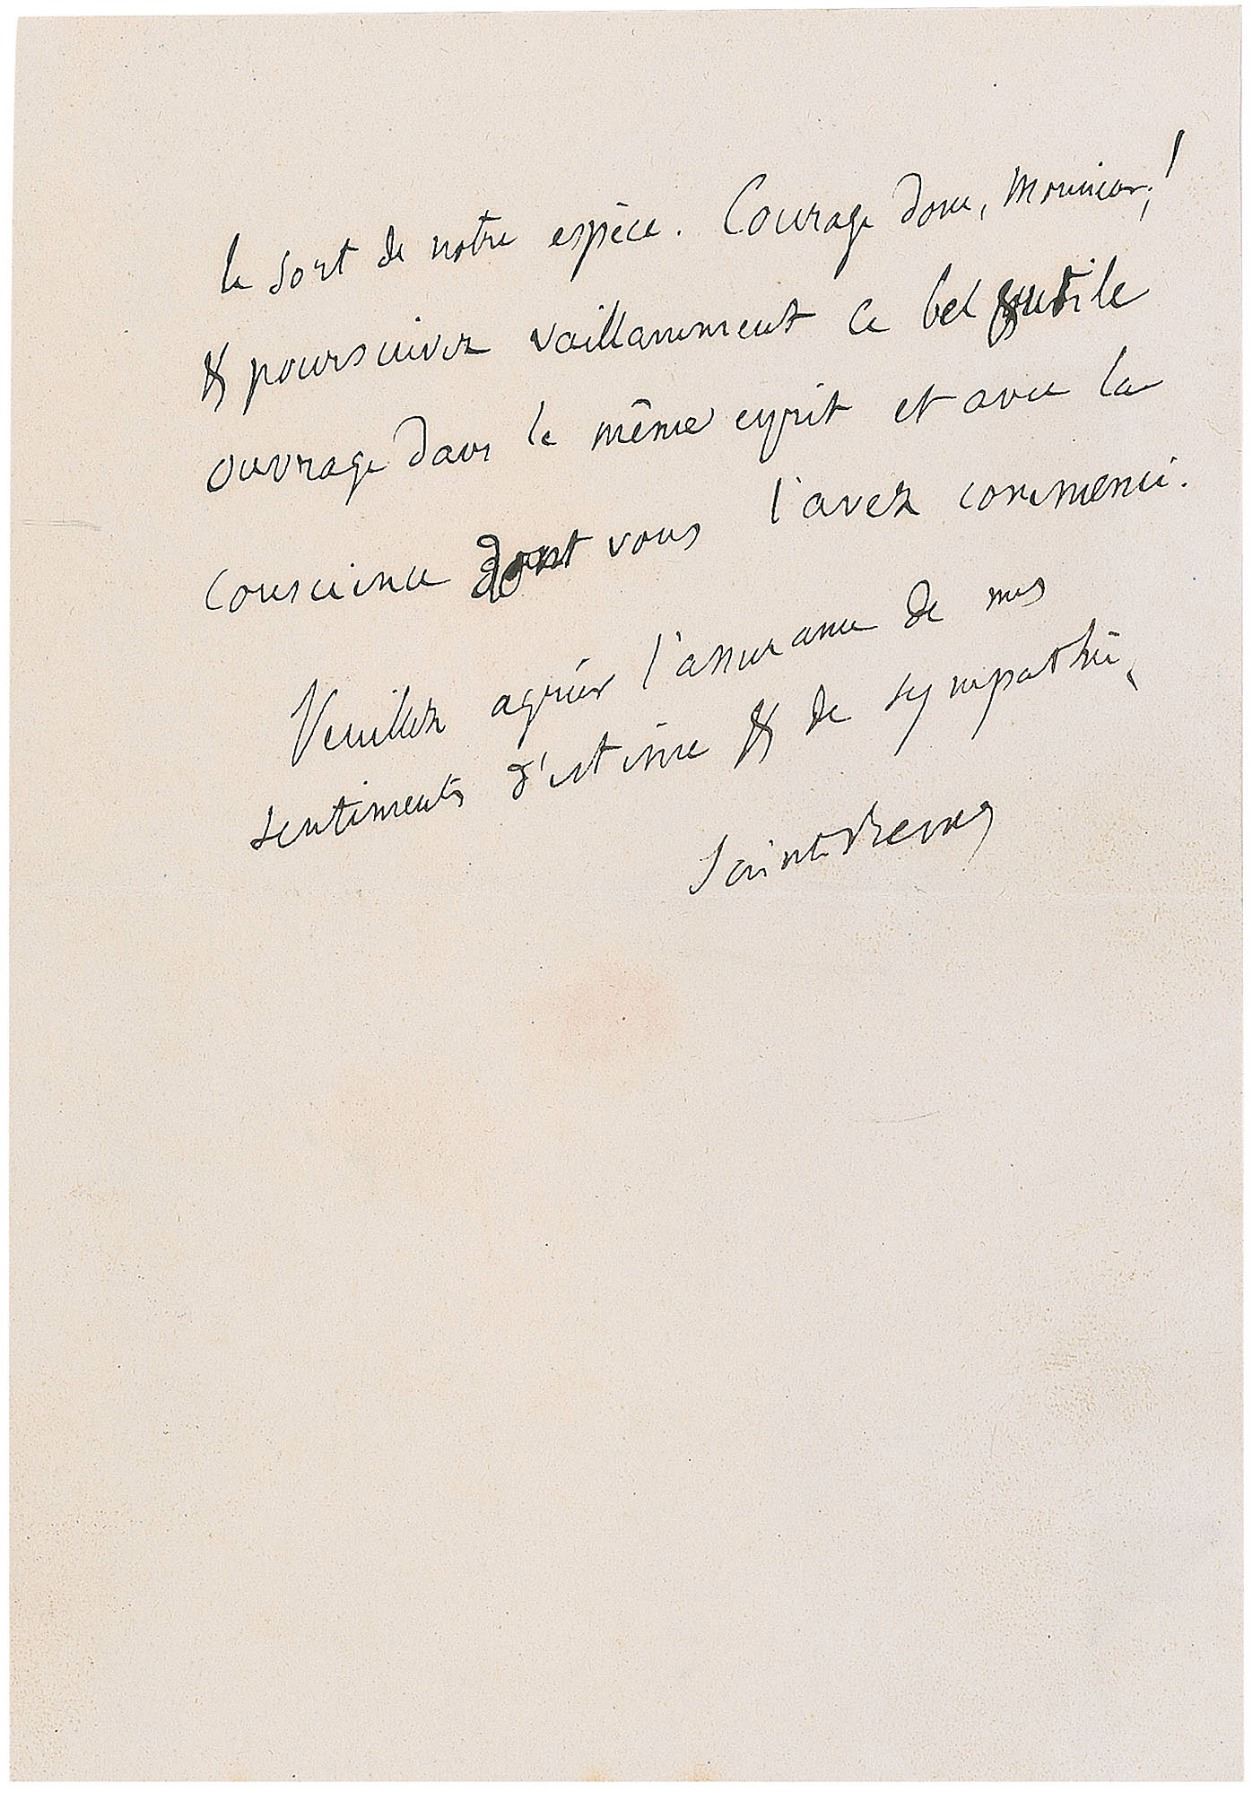 le sort de notre espèce. Courage donc, Monsieur,!
& poursuivez vaillamment ce bel & utile
ouvrage dans le même esprit et avec la
conscience dont vous l'avez commencé.
Veuillez agréer l'assurance de mes
sentiments d'estime & de sympathie,
Saint-Renez